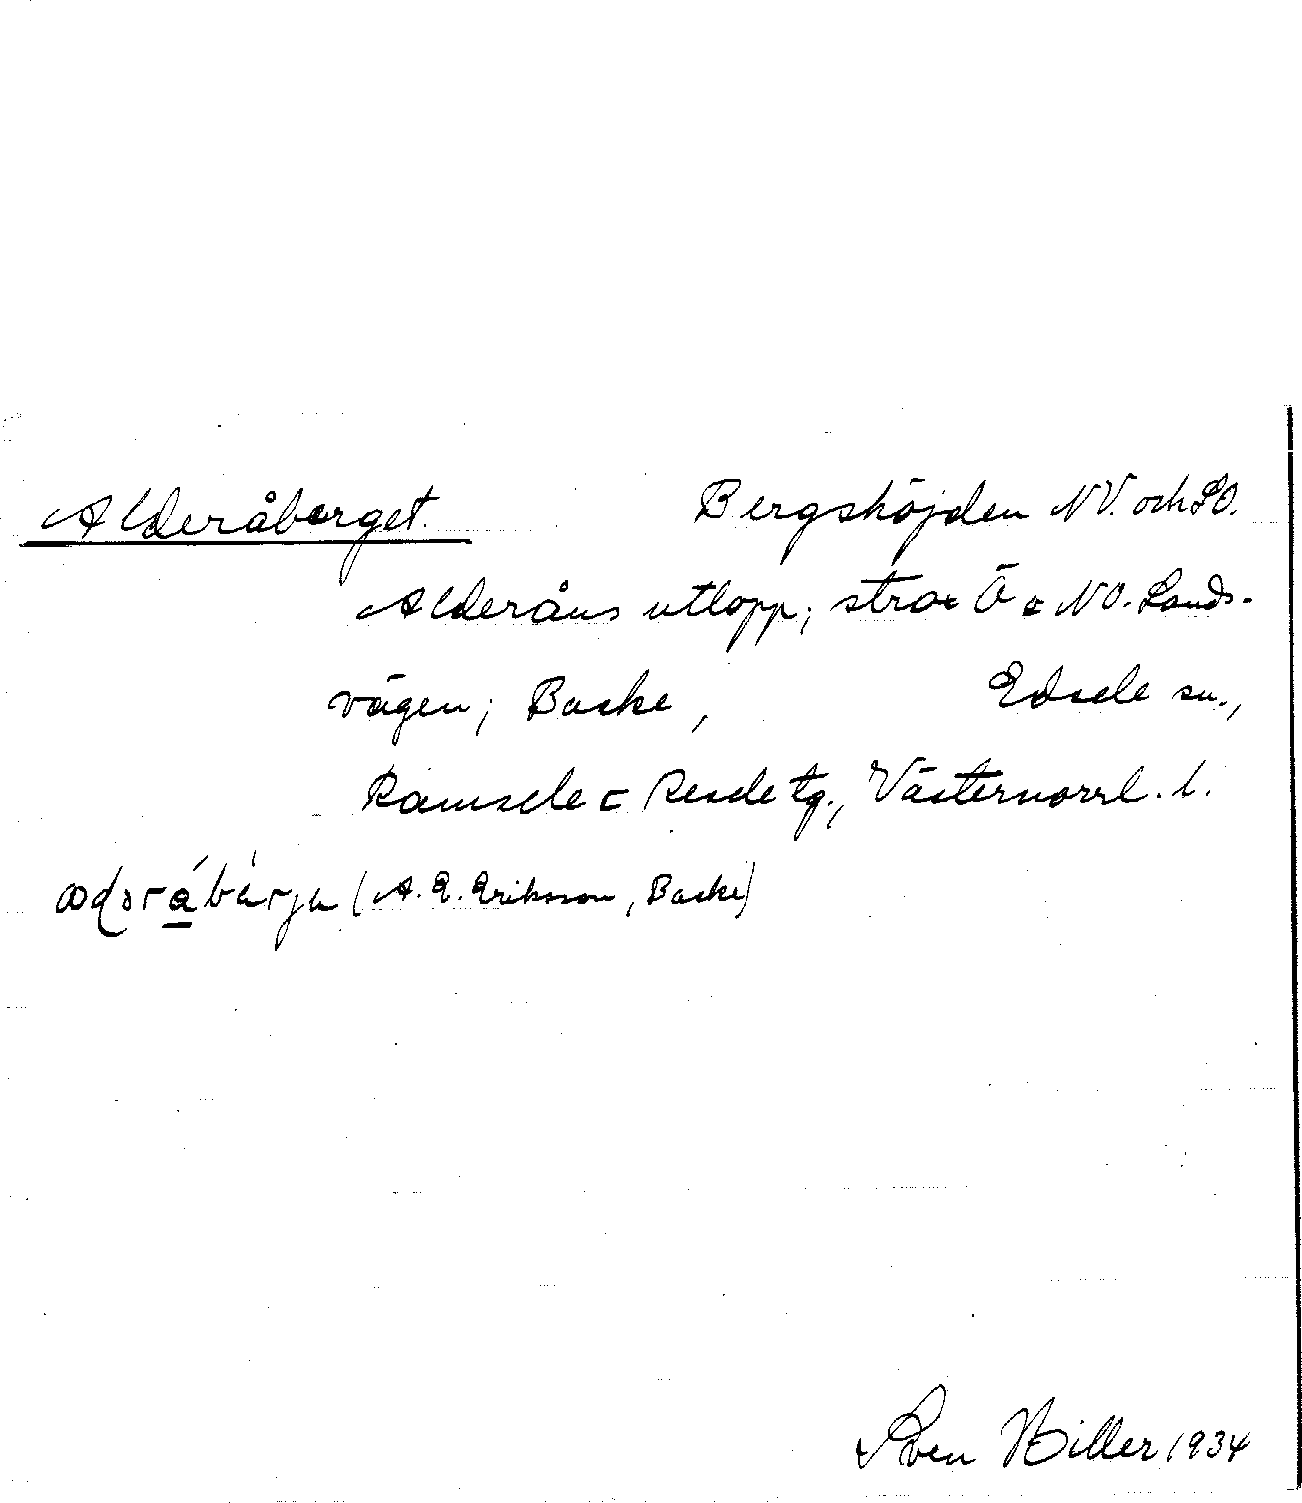 Alderåberget. Bergshöjden NV. och SO.
Alderåns utlopp; strax Ö o NO. Lands-
vägen; Backe, Edsele sn.,
Ramsele o Resele tg., Västernorrl. l.
(A. E. Eriksson, Backe)
Sven Hiller 1934